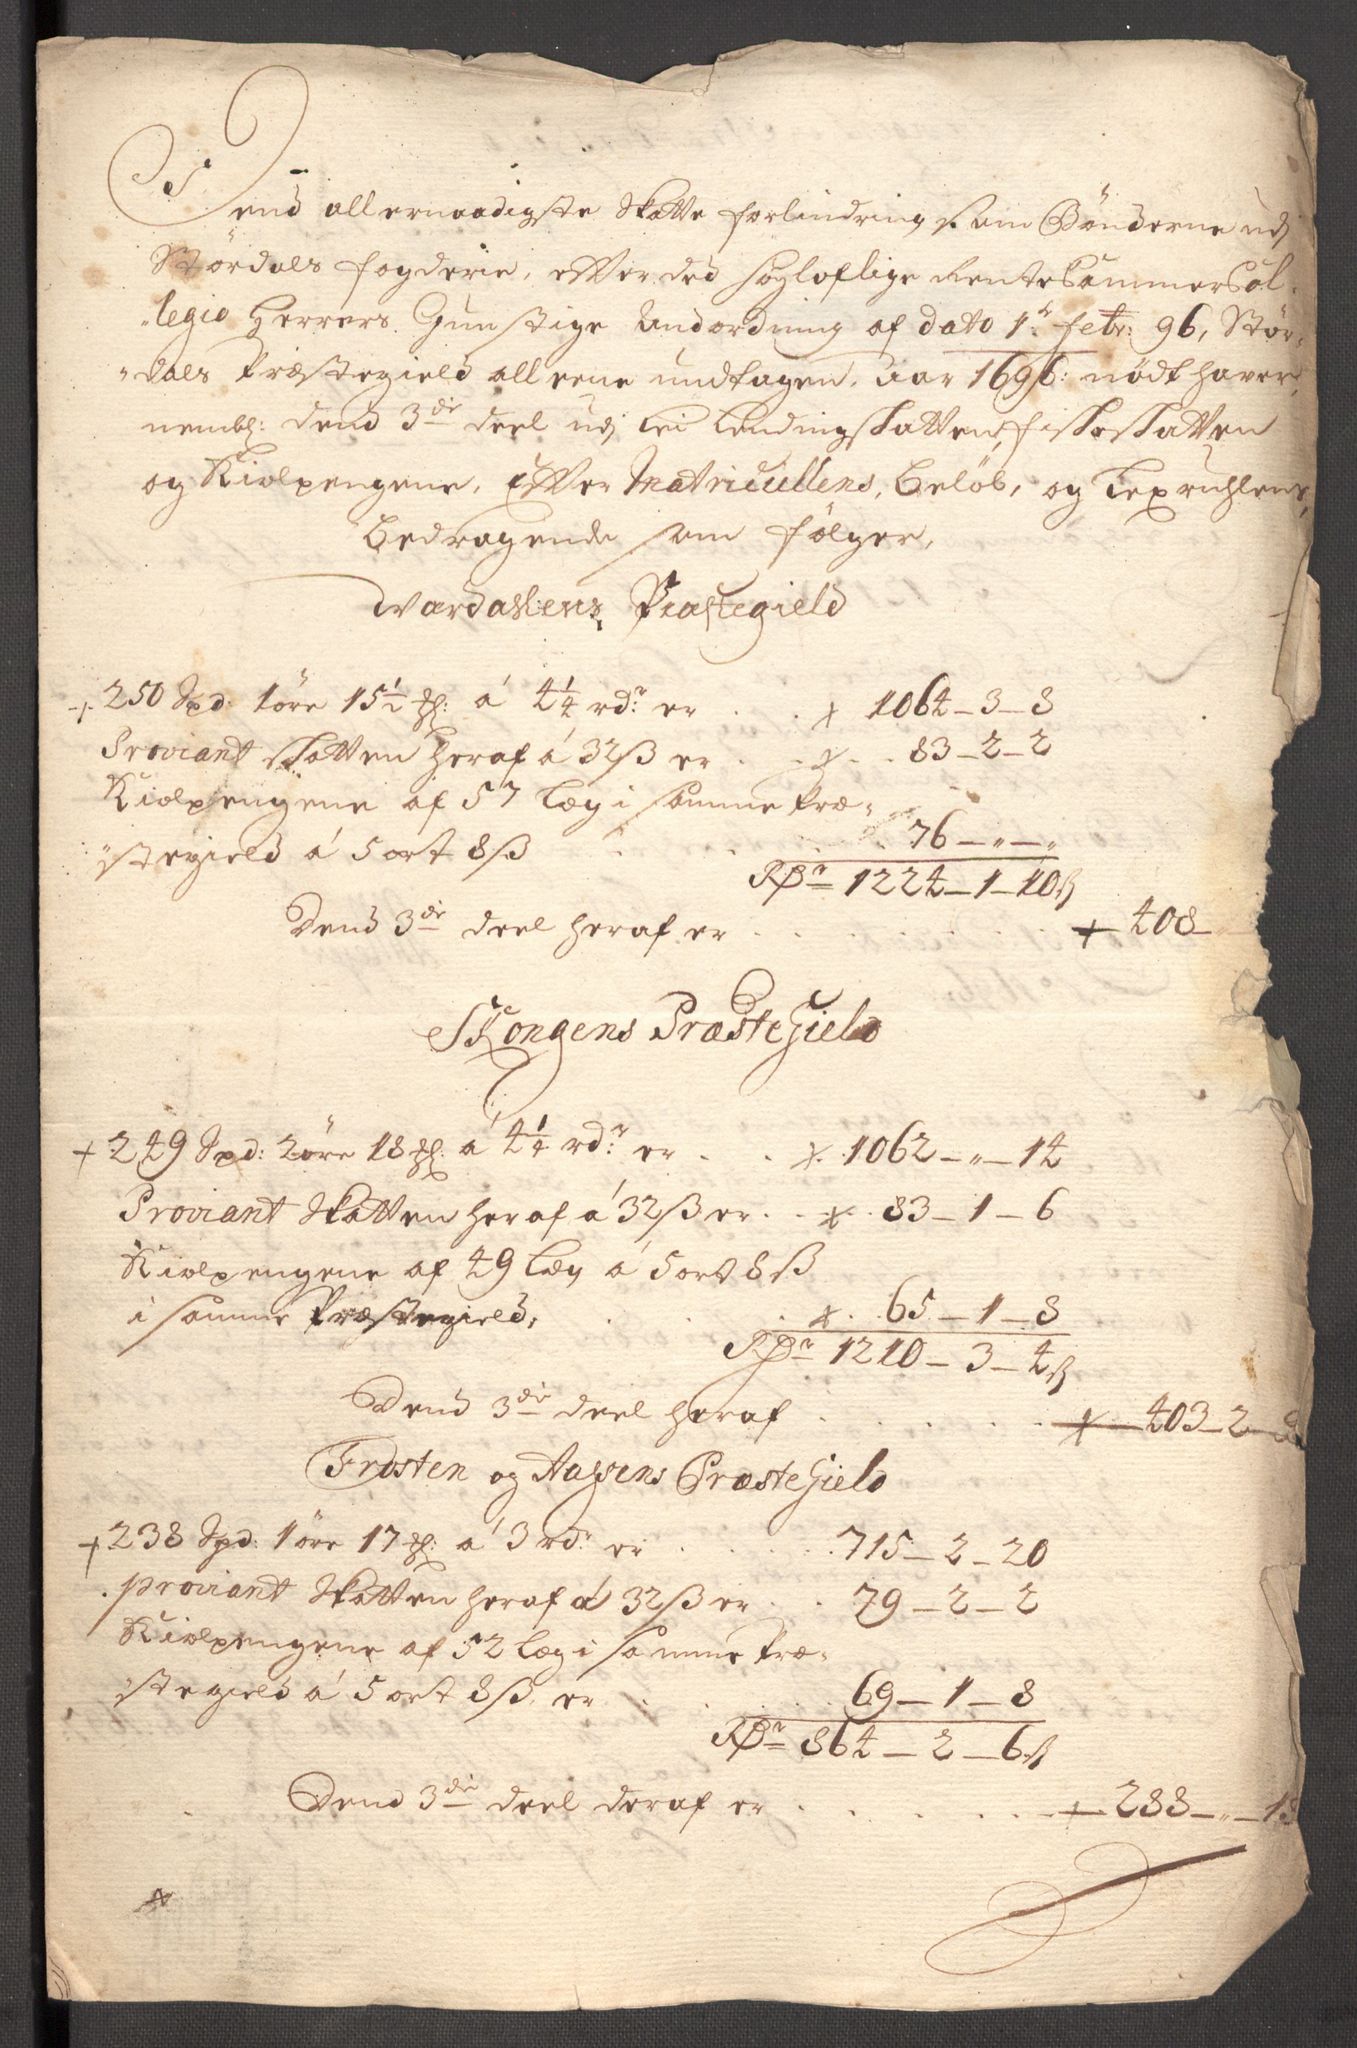 Dend allernaadigste Skatte forlindring som Bönderne udj
Stördals fogderie, efter ded högloflige RenteCammerCol-
legio Herrers Gunstige Andordning af dato 1ᵗ febr: 96, Stör-
dals Præstegield alleene undtagen, Aar 1696: nødt haver,
nembl: dend 3die deel udj Leilendingskatten, fosskatten
og Kiølpengene, Efter Matricullens, beløb, og
bedragende som fölger,
Wardahlens Præstegield
+ 250 Spd: 1 öre 15½ á 4¼ rdr er . . . 1064 – 3 – 8
Proviant skatten heraf á 32 ß er . . . 83 – 2 – 2
Kiølpengene af 57 læg i samme Præ-
stegield á 5 ort 8 ß . . . 76 – „ – „
Rdr 1224 – 1 – 10 ß
Dend 3die deel heraf er . . . 408 –
Skongens PræsteGield
+ 249 Spd: 2 öre 18 á 4¼ rdr er . . 1062 – „ – 14
Proviant Skatten heraf á 32 ß er . . 83 – 1 – 6
Kiølpengene af 49 læg á 5 ort 8 ß
i samme Præstegield, . . . 65 – 1 – 8
Rdr 1210 – 3 – 4 ß
Dend 3die deel heraf . . . 403 – 2 –
Frosten og Aasens PræsteGield
+ 238 Spd: 1 öre 17 á 3 rdr er . . . 715 – 2 – 20
Proviant Skatten heraf á 32 ß er . . 79 – 2 – 2
Kiølpengene af 52 læg i samme Præ-
stegield á 5 ort 8 ß, er . . . 69 – 1 – 8
Rdr 864 – 2 – 6 ß
Dend 3die deel deraf er . . . 288 – „ – 18